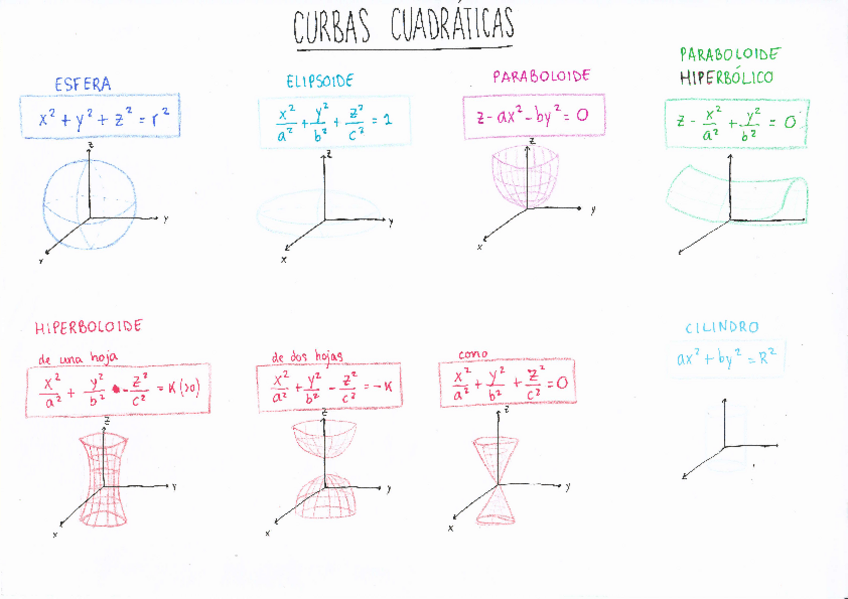 CURBAS CUADRÁTICAS
ESFERA
x² + y² + z² = r²
z
y
x
ELIPSOIDE
x²/a² + y²/b² + z²/c² = 1
z
y
x
PARABOLOIDE
z - ax² - by² = 0
z
y
x
PARABOLOIDE
HIPERBÓLICO
z - x²/a² + y²/b² = 0
HIPERBOLOIDE
de una hoja
x²/a² + y²/b² - z²/c² = K (>0)
z
y
x
de dos hojas
x²/a² + y²/b² - z²/c² = -K
z
y
x
cono
x²/a² + y²/b² + z²/c² = 0
z
y
x
CILINDRO
ax² + by² = R²